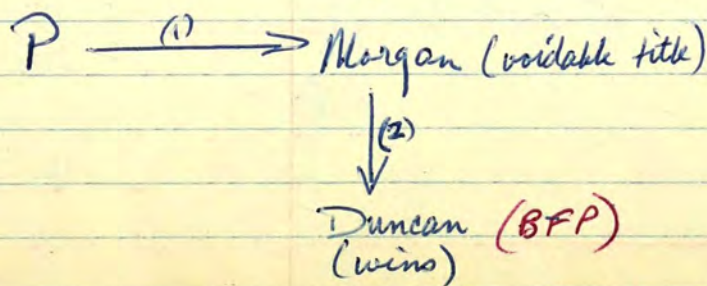 P (1) Morgan (voidable title)
(2)
Duncan (BFP)
(wins)